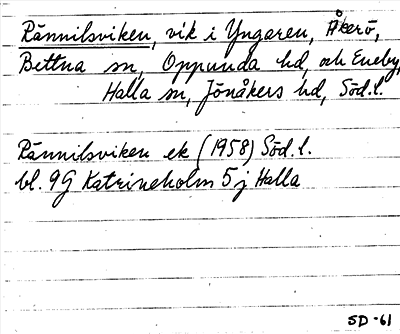 Rännilsviken, vik i Yngaren, Åkerö,
Bettna sn, Oppunda hd, och Eneby,
Halla sn, Jönåkers hd, Söd.l.
Rännilsviken ek (1958) Söd.l.
bl. 9G Katrineholm 5j Halla
SD-61